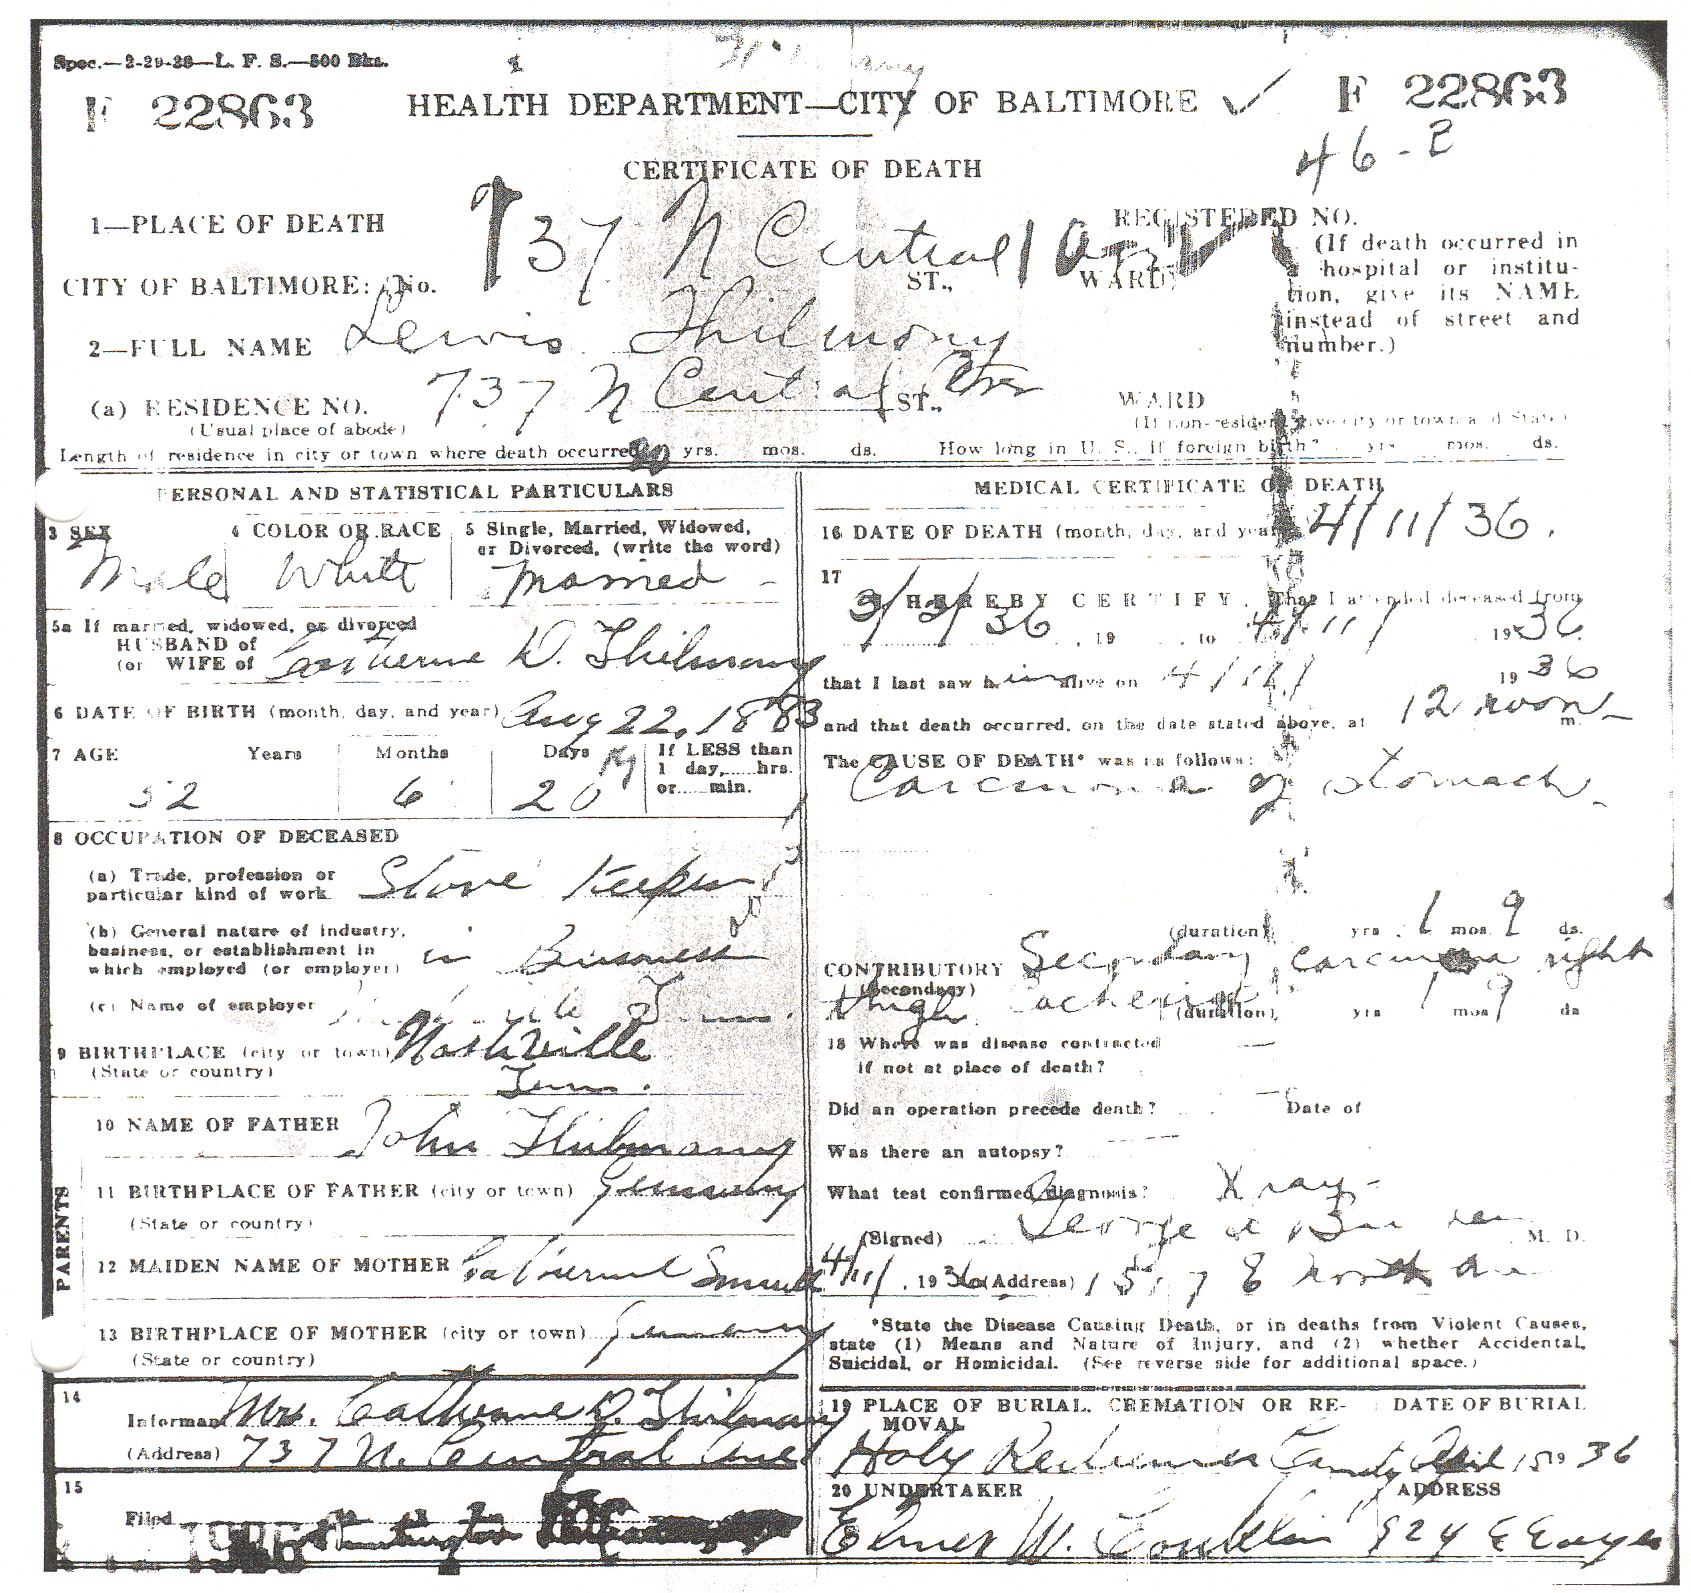 Spec.—2-29-28—L. F. S.—500 Bks.
F 22863 HEALTH DEPARTMENT—CITY OF BALTIMORE ✓ F 22863
46-B
CERTIFICATE OF DEATH
1—PLACE OF DEATH
REGISTERED NO.
CITY OF BALTIMORE: (No. 737 N Central ST., WARD)
(If death occurred in
a hospital or institu-
tion, give its NAME
instead of street and
number.)
2—FULL NAME Lewis Thilmony
(a) RESIDENCE NO. 737 N Central ST., Ave WARD
(Usual place of abode) (If non-resident give city or town and State)
Length of residence in city or town where death occurred yrs. mos. ds. How long in U. S., if foreign birth? yrs mos. ds.
PERSONAL AND STATISTICAL PARTICULARS
3 SEX 4 COLOR OR RACE 5 Single, Married, Widowed,
or Divorced, (write the word)
Male White Married
5a If married, widowed, or divorced
HUSBAND of
(or WIFE of Catherine D. Thilmany
6 DATE OF BIRTH (month, day, and year) Aug 22, 1883
7 AGE Years Months Days If LESS than
1 day,.....hrs.
or..... min.
52 6 20
8 OCCUPATION OF DECEASED
(a) Trade, profession or
particular kind of work Store Keeper
(b) General nature of industry,
business, or establishment in
which employed (or employer) in Business
(c) Name of employer
9 BIRTHPLACE (city or town) Nashville
(State or country) Tenn.
PARENTS
10 NAME OF FATHER John Thilmany
11 BIRTHPLACE OF FATHER (city or town) Germany
(State or country)
12 MAIDEN NAME OF MOTHER
13 BIRTHPLACE OF MOTHER (city or town) Germany
(State or country)
14
Informant Mrs. Catherine D. Thilmany
(Address) 737 N. Central Ave
15
Filed
MEDICAL CERTIFICATE OF DEATH
16 DATE OF DEATH (month, day, and year) 4/11/36.
17
I HEREBY CERTIFY, That I attended deceased from
3/3/36, 19 , to 4/11/ 1936.
that I last saw him alive on 4/11/ 1936
and that death occurred, on the date stated above, at 12 noon m.
The CAUSE OF DEATH* was as follows:
Carcinoma of stomach
(duration) yrs. 1 mos. 9 ds.
CONTRIBUTORY Secondary carcinoma right
(Secondary)
thigh Cachexia (duration) yrs 1 mos 9 ds
18 Where was disease contracted
if not at place of death?
Did an operation precede death? Date of
Was there an autopsy?
What test confirmed diagnosis? X ray
(Signed) George M. D.
4/11/, 1936 (Address) 1517 E North Ave
*State the Disease Causing Death, or in deaths from Violent Causes,
state (1) Means and Nature of Injury, and (2) whether Accidental,
Suicidal, or Homicidal. (See reverse side for additional space.)
19 PLACE OF BURIAL, CREMATION OR RE- DATE OF BURIAL
MOVAL
Holy Redeemer April 15 1936
20 UNDERTAKER ADDRESS
Elmer W. Conklin 924 E Eager